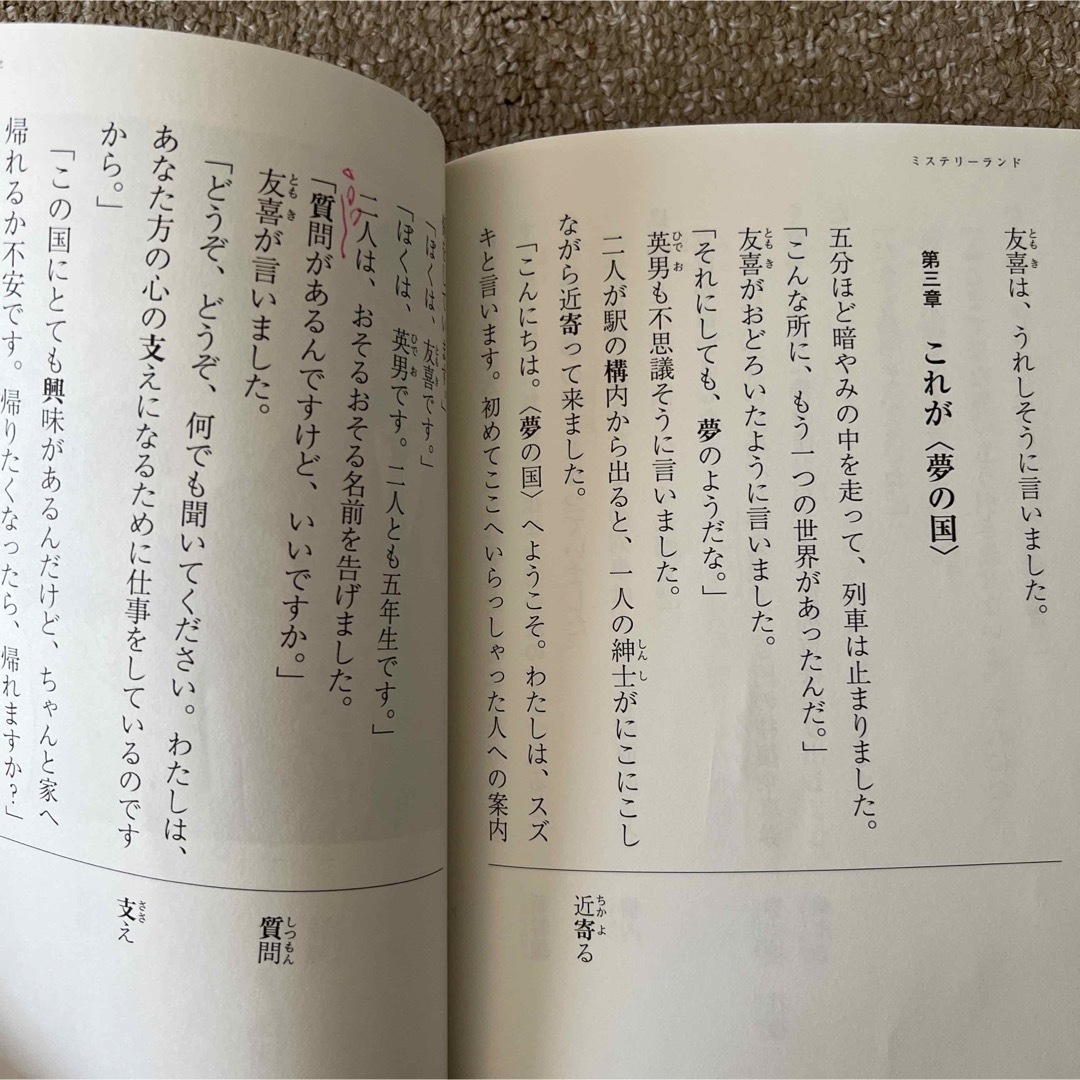 ミステリーランド
友喜は、うれしそうに言いました。
第三章　これが〈夢の国〉
五分ほど暗やみの中を走って、列車は止まりました。
「こんな所に、もう一つの世界があったんだ。」
友喜がおどろいたように言いました。
「それにしても、夢のようだな。」
英男も不思議そうに言いました。
二人が駅の構内から出ると、一人の紳士がにこにこし
ながら近寄って来ました。
「こんにちは。〈夢の国〉へようこそ。わたしは、スズ
キと言います。初めてここへいらっしゃった人への案内
近寄る
「ぼくは、友喜です。」
「ぼくは、英男です。二人とも五年生です。」
二人は、おそるおそる名前を告げました。
「質問があるんですけど、いいですか。」
友喜が言いました。
「どうぞ、どうぞ、何でも聞いてください。わたしは、
あなた方の心の支えになるために仕事をしているのです
から。」
「この国にとても興味があるんだけど、ちゃんと家へ
帰れるか不安です。帰りたくなったら、帰れますか？」
質問
支え